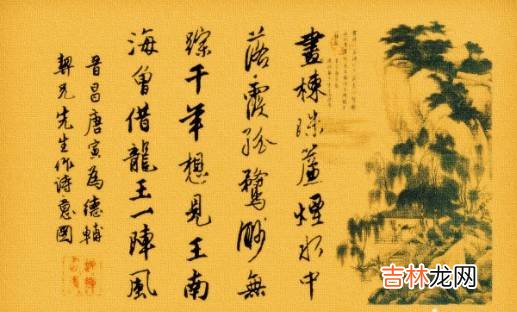 畫棟珠簾煙水中
落霞孤鶩渺無
踪千年想見王南
海曾借龍王一陣風
晉昌唐寅為德輔
契兄先生作詩意圖
吉林龙网